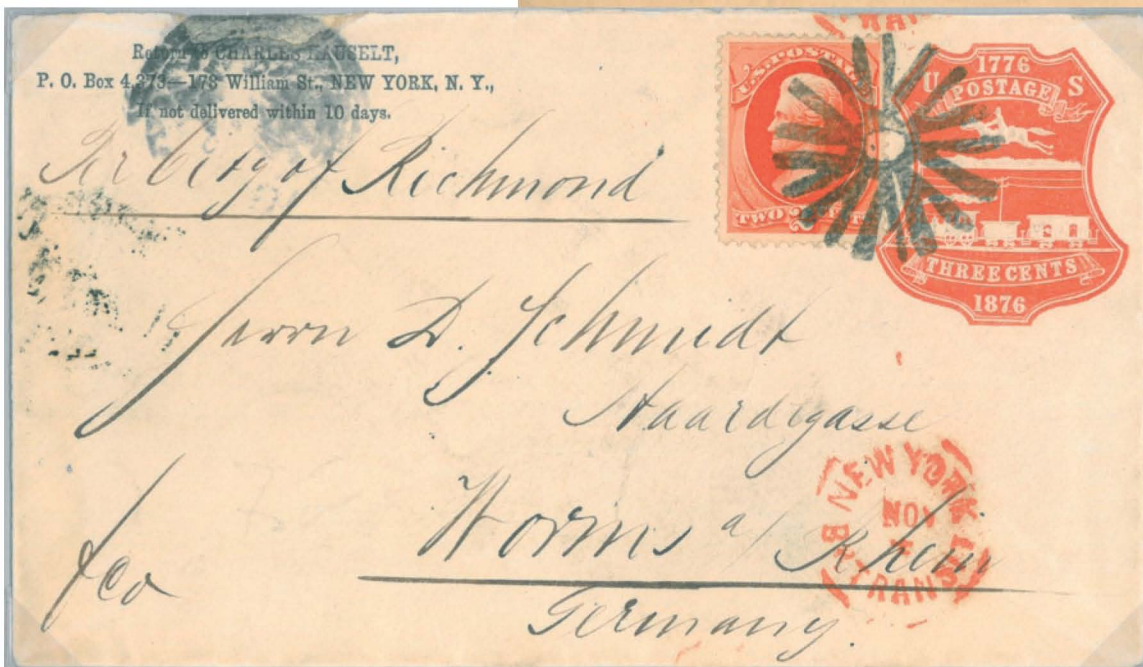 Return to CHARLES HAUSELT,
P. O. Box 4,373—178 William St., NEW YORK, N. Y.,
If not delivered within 10 days.
Per City of Richmond
U.S. POSTAGE
TWO 2 CENTS
1776
U S
POSTAGE
THREE CENTS
1876
Herrn D. Schmidt
Haardtgasse
Worms a/ Rhein
Germany.
fco
NEW YORK
NOV
BR TRANSIT
TRAN